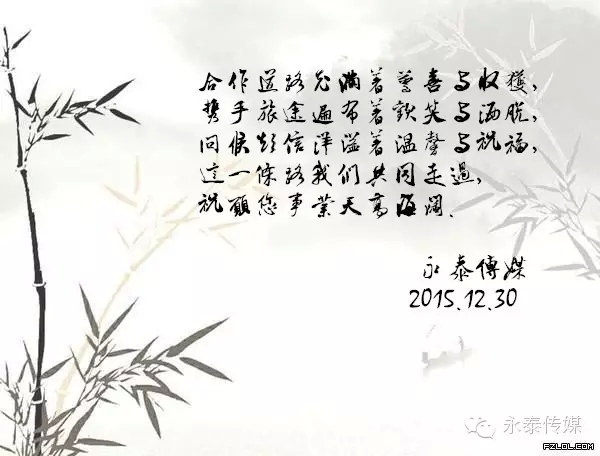 合作道路充满着惊喜与收獲,
携手旅途遍布着欢笑与洒脱,
问候短信洋溢着温馨与祝福,
這一條路我们共同走過,
祝願您事業天高海阔.
永泰傳媒
2015.12.30
永泰传媒
PZLOL.COM